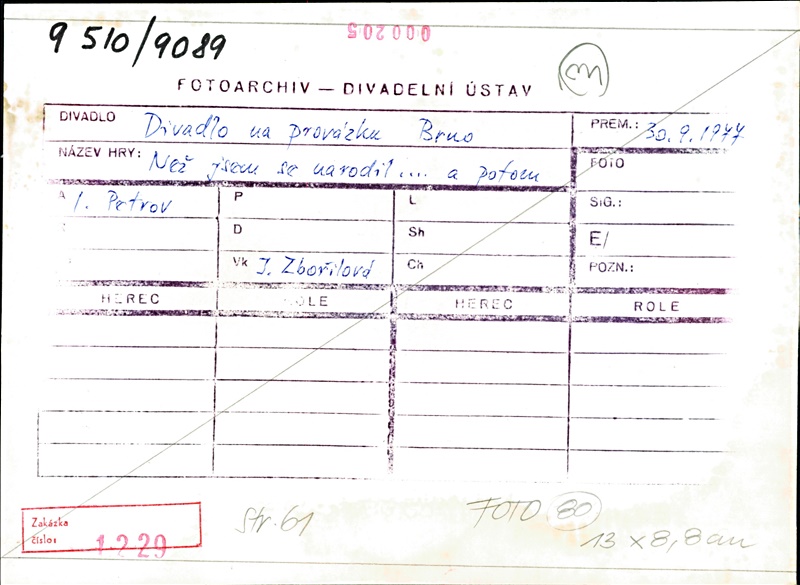 9 510/9089
000205
FOTOARCHIV — DIVADELNÍ ÚSTAV
DIVADLO Divadlo na provázku Brno PREM.: 30.9.1977
NÁZEV HRY: Než jsem se narodil.... a potom FOTO
A I. Petrov P L SIG.:
D Sh E/
Vk J. Zbořilová Ch POZN.:
HEREC ROLE HEREC ROLE
Zakázka
číslo: 1229
Str. 61
FOTO 30
13 x 8,8 cm